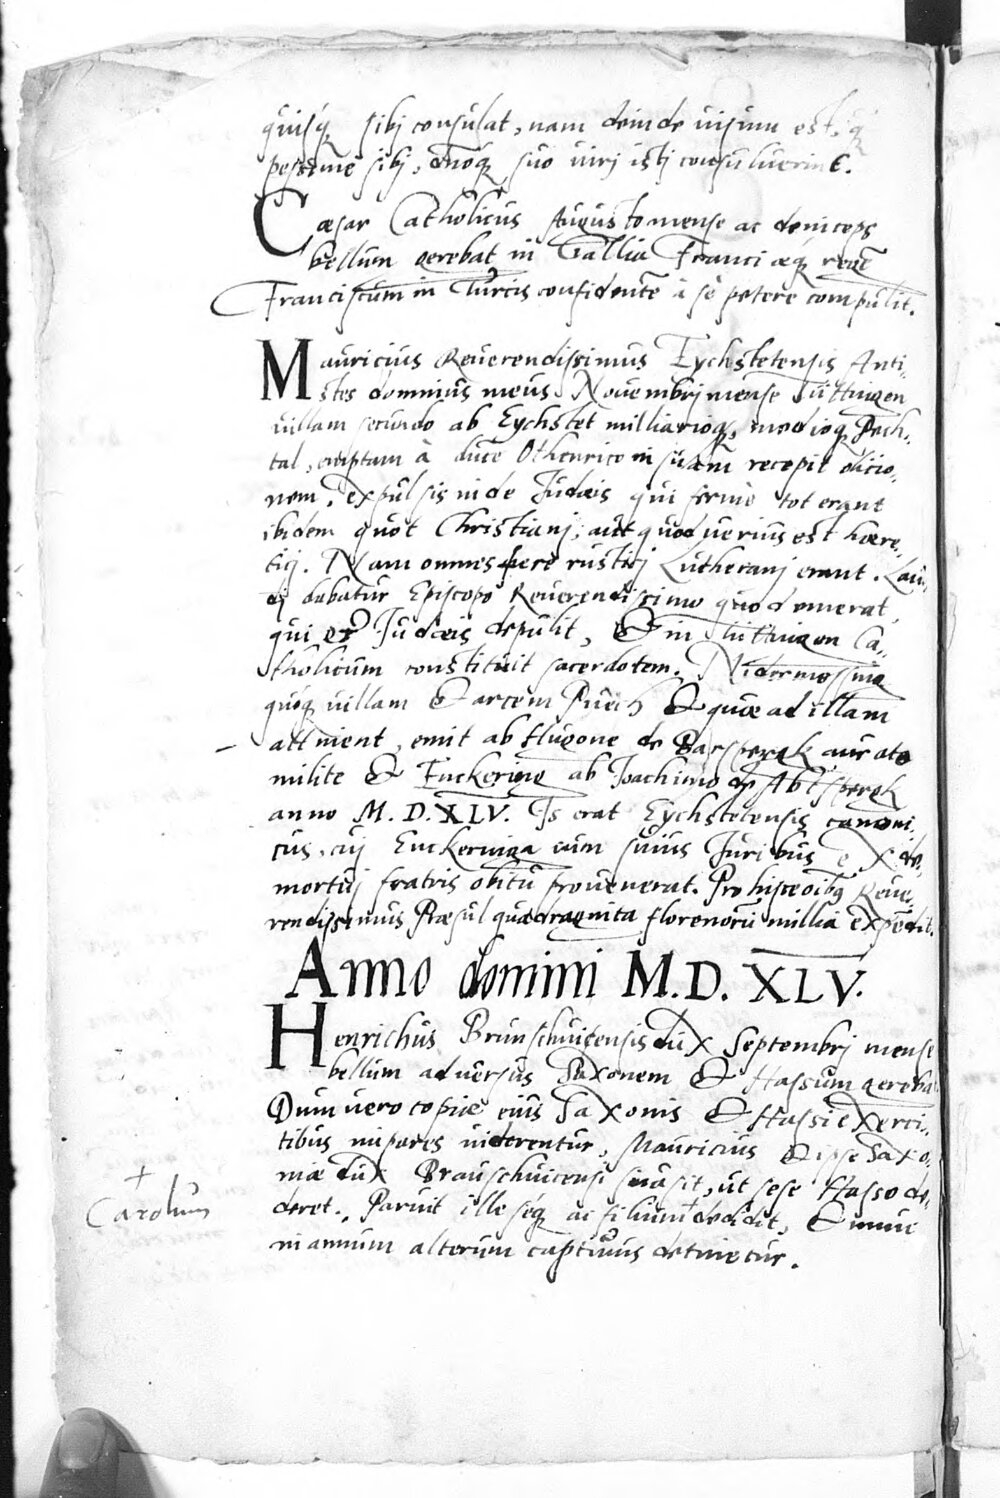 quisq́ sibj consulat, nam deinde uisum est, q́
pessime sibj, duoq́ suo uirj istj consuluerint.
Cæsar Catholicus Augusto mense ac deinceps
bellum gerebat in Gallia Franciæq́ regē
Franciscum in Turcis confidentē à se petere compulit.
Mauricius Reuerendissimus Eychstetensis Anti-
stes dominus meus Nouembrj mense Tüttingen
uillam secundo ab Eychstet milliarioq́, medioq́ Pech-
tal, emptam à duce Othenrico in suam recepit ditio-
nem, expulsis inde Judæis qui ferme tot erant
ibidem quot Christianj, aut quod uerius est hære-
ticj. Nam omnes fere rusticj Lutheranj erant. Lau-
dj dabatur Episcopo Reuerendissimo quod emerat,
qui et Judæis depulit, & in Tüttingen Ca-
tholicum constituit sacerdotem. Nidermessing
quoq́ uillam & arcem Puech & quæ ad illam
attinent, emit ab Hugone de Parspergk aurato
milite & Euckering ab Joachimo de Abtspergk
anno M. D. XLV. Is erat Eychstetensis canoni-
cus, cuj Euckeringa cum suius Juribus ex de-
mortuj fratris obitu prouenerat. Pro hisce oībq Reue-
rendissimus Præsul quadraginta florenorū millia expēdit.
Anno domini M.D. XLV.
Henrichus Brunschuicensis dux Septembrj mense
bellum aduersus Saxonem & Hassum gereba
Dum uero copiæ eius Saxonis & Hassi exerci-
tibus impares uiderentur, Mauricius & ipse Saxo-
niæ dux Braunschuicensi suasit, ut sese Hasso de-
deret. Paruit ille seq́ ac filium † dedidit, & nunc
in annum alterum captiuus detinetur.
†
Carolum